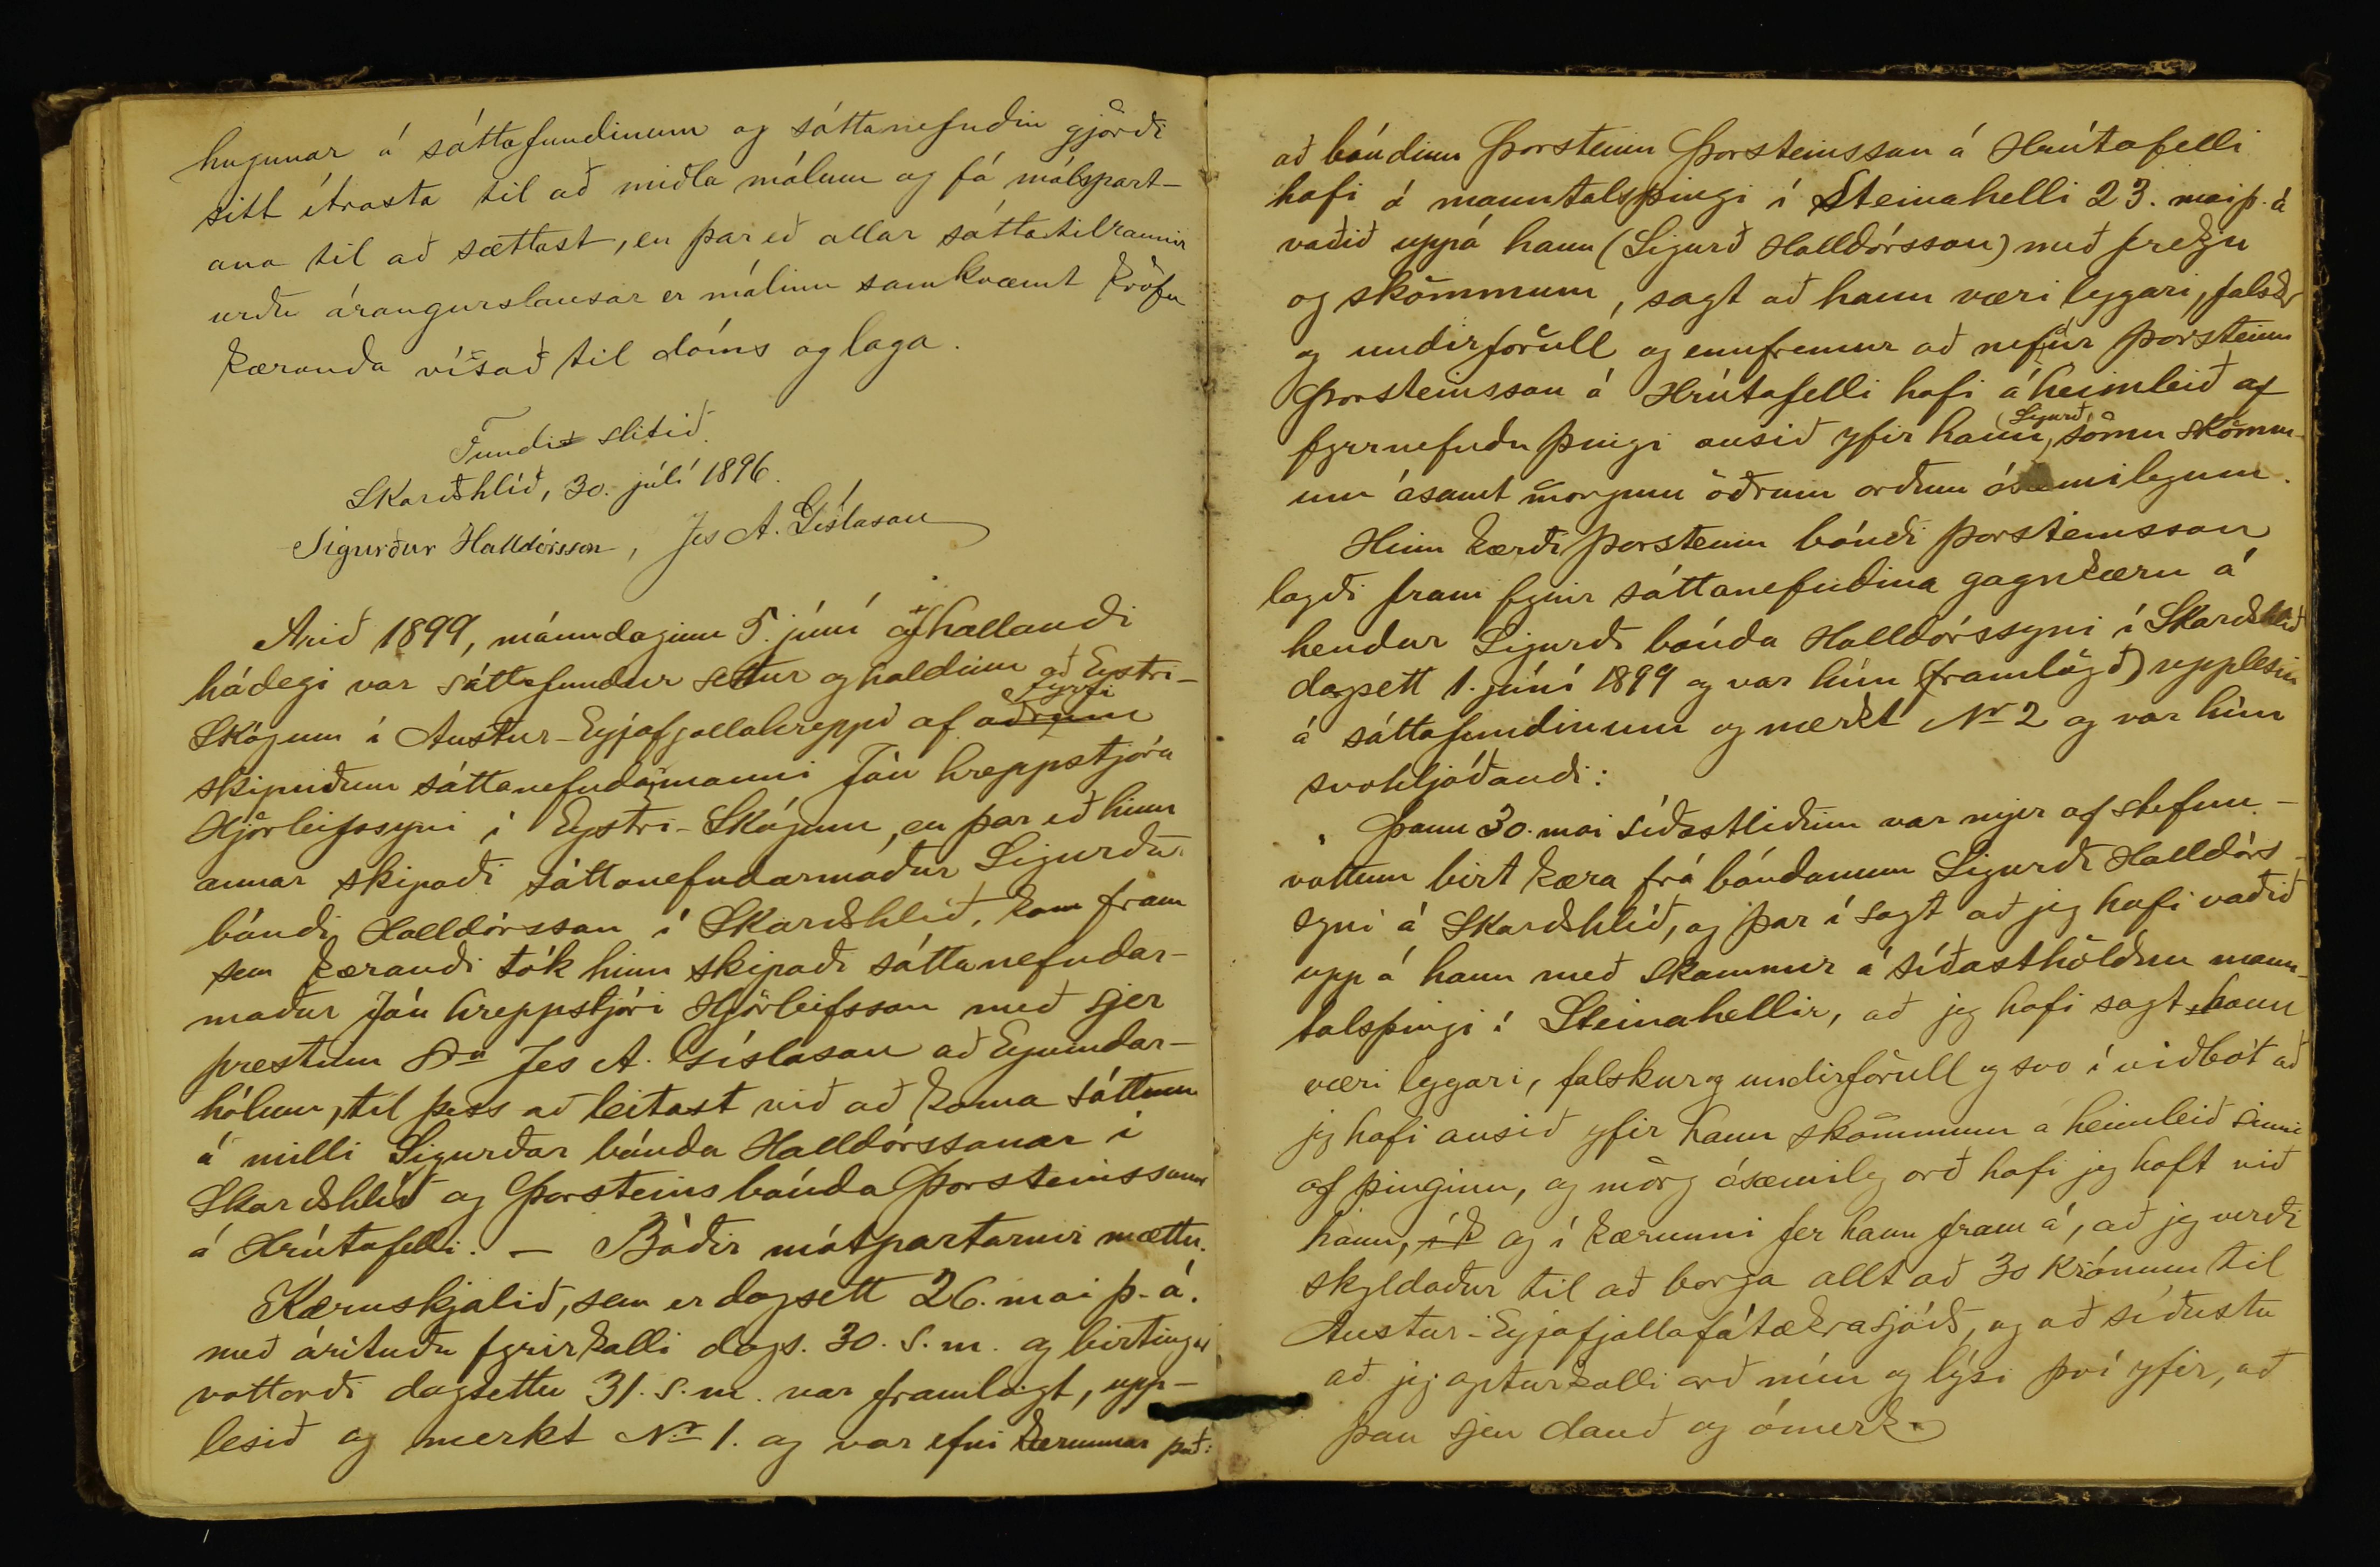 hugunar á sáttafundinum og sáttanefndin gjörði
sitt ítrasta til að miðla málum og fá málspart-
ana til að sættast, en þar eð allar sáttatilraunir
urðu árangurslausar er málinu samkvæmt kröfu
kæranda vísað til dóms og laga.
Fundi slitið.
Skarðshlíð, 30. júlí 1896.
Sigurður Halldórsson, Jes A. Gíslason
Árið 1899, mánudaginn 5. júní af hallandi
hádegi var sáttafundur settur og haldinn að Eystri-
Skógum í Austur-Eyjafjallahreppi af öðrum fyrri
skipuðum sáttanefndarmanni Jón hreppstjóra
Hjörleifssyni í Eystri-Skógum, en þar eð hinn
annar skipaði sáttanefndarmaður Sigurður
bóndi Halldórsson í Skarðshlíð, kom fram
sem kærandi tók hinn skipaði sáttanefndar-
maður Jón hreppstjóri Hjörleifsson með sjer
prestinn Sra Jes A. Gíslason að Eyvindar-
hólum, til þess að leitast við að koma sáttum
á milli Sigurðar bónda Halldórssonar í
Skarðshlíð og Þorsteins bónda Þorsteinssonar
á Hrútafelli. — Báðir málspartarnir mættu.
Kæruskjalið, sem er dagsett 26. mai þ. á.
með árituðu fyrirkalli dags. 30. s. m. og birtingar
vottorði dagsettu 31. s. m. var framlagt, upp-
lesið og merkt Nr 1. og var efni kærunnar það:
að bóndinn Þorsteinn Þorsteinsson á Hrútafelli
hafi á manntalsþingi í Steinahelli 23. mai þ. á
vaðið uppá hann (Sigurð Halldórsson) með frekju
og skömmum, sagt að hann væri lygari, falskur
og undirförull og ennfremur að nefndur Þorsteinn
Þorsteinsson á Hrútafelli hafi á heimleið af
fyrrnefndu þingi ausið yfir hann, Sigurð, sömu skömm-
um ásamt mörgum öðrum orðum ósæmilegum.
Hinn kærði Þorsteinn bóndi Þorsteinsson
lagði fram fyrir sáttanefndina gagnkæru á
hendur Sigurði bónda Halldórssyni í Skarðshlíð
dagsett 1. júní 1899 og var hún (framlögð) upplesin
á sáttafundinum og merkt Nr 2 og var hún
svohljóðandi:
„Þann 30. mai síðastliðinn var mjer af stefnu-
vottum birt kæra frá bóndanum Sigurði Halldórs-
syni á Skarðshlíð, og þar í sagt að jeg hafi vaðið
upp á hann með skammir á síðasthöldnu mann-
talsþingi í Steinahellir, að jeg hafi sagt hann
væri lygari, falskur og undirförull og svo í viðbót að
jeg hafi ausið yfir hann skömmum á heimleið sinni
af þinginu, og mörg ósæmileg orð hafi jeg haft við
hann, og í kærunni fer hann fram á, að jeg verði
skyldaður til að borga allt að 30 krónum til
Austur-Eyjafjallafátækrasjóðs, og að síðustu
að jeg apturkalli orð mín og lýsi því yfir, að
þau sjeu dauð og ómerk.